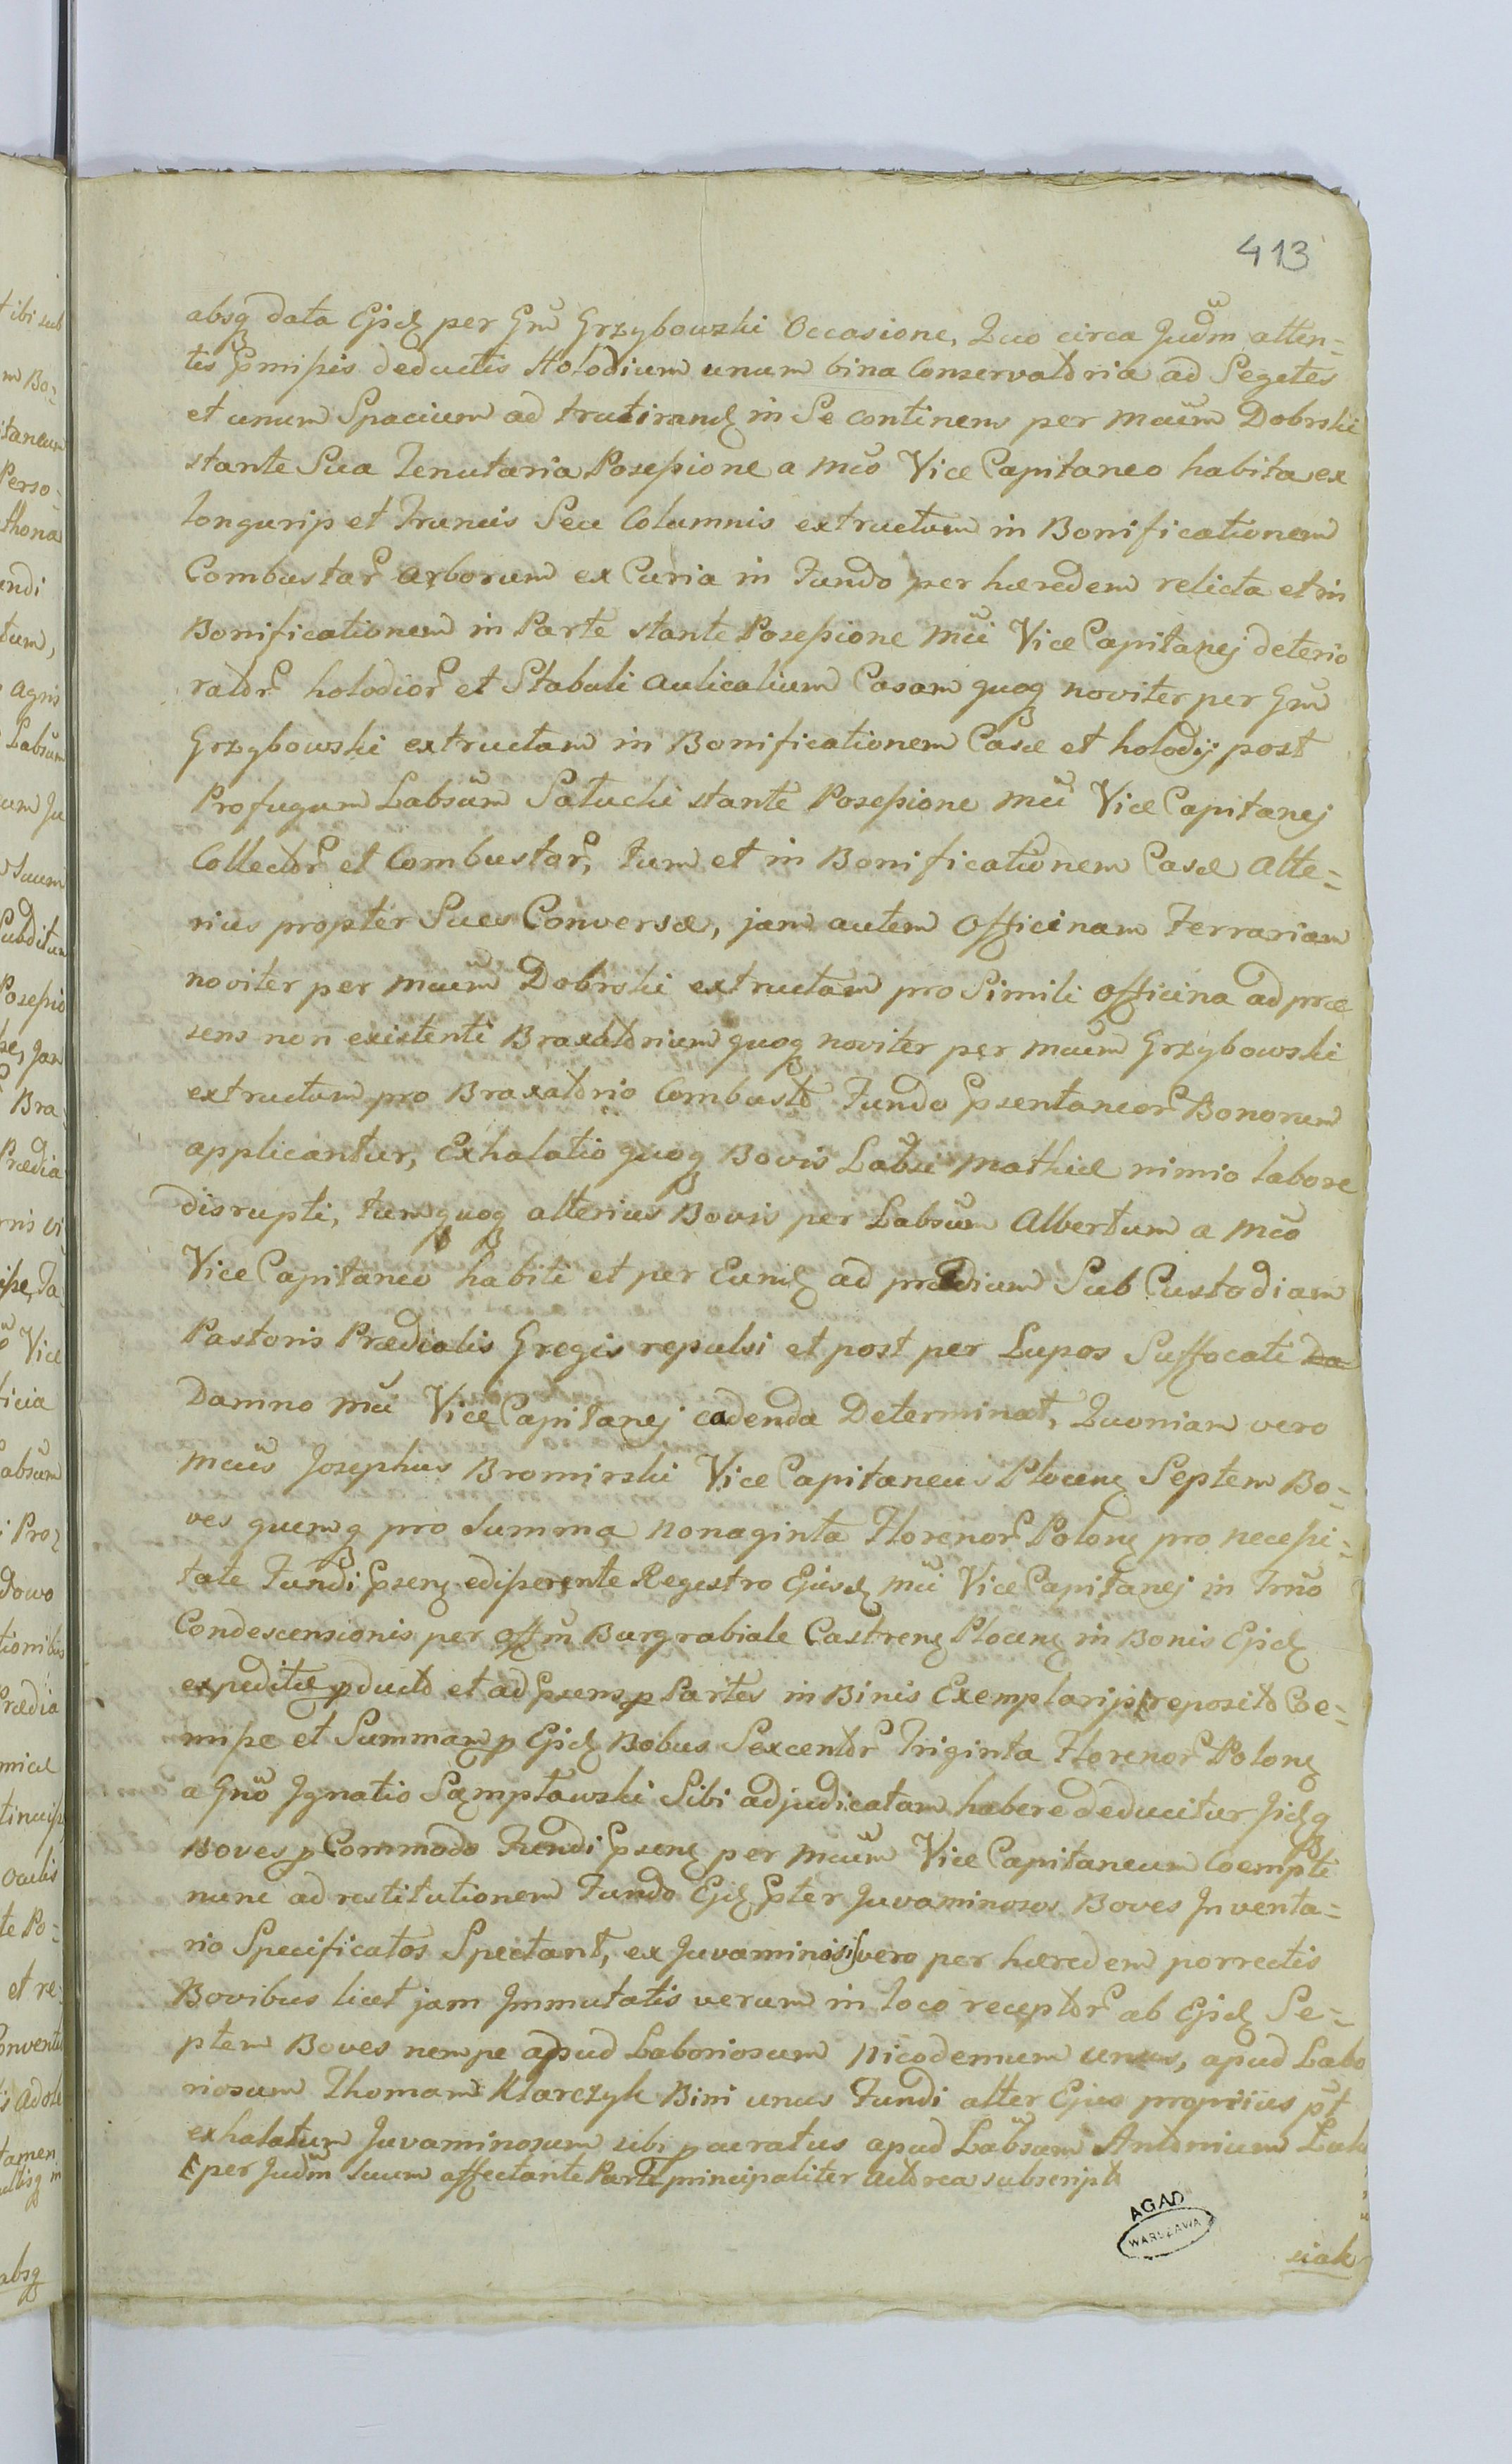 413
absq data Ejsd per Gm̃ Grzybowski Occasione, Quo circa Judm̃ atten=
tis Pmissis deductis Holodium unum bina Conservatoria ad Segetes
et unum Spacium ad truturand in Se continens per Mcum̃ Dobrski
stante Sua Tenutaria Possessione a Mco Vice Capitaneo habita ex
longurijs et Truncis Seu Columnis extructum in Bonificationem
Combustar Arborum ex Curia in Fundo per hæredem relicta et in
Bonificationem in Parte stante Possessione Mci Vice Capitanej deterio
rator holodior et Stabuli Aulicalium Casam quoq noviter per Gm̃
Grzybowski extructam in Bonificationem Casæ et holodij post
Profugum Labsum Satucki stante Possessione Mci Vice Capitanej
Collector et Combustar, tum et in Bonificationem Casæ Alte=
rius propter Sues Conversæ, jam autem Officinam Ferrariam
noviter per Mcum̃ Dobrski extructam pro Simili Officina ad præ
sens non existenti Braxatorium quoq noviter per Mcum Grzybowski
extructum pro Braxatorio Combusto Fundo Psentaneor Bonorum
applicantur, Exhalatio quoq Bovis Labsi Mathiæ nimio labore
disrupti, tum quoq alterius Bovis per Labsum Albertum a Mco
Vice Capitaneo habiti et per Eund ad prædium Sub Custodiam
Pastoris Prædialis Gregis repulsi et post per Lupos Suffocati Da
Damno Mci Vice Capitanej cadenda Determinat, Quoniam vero
Mcus Josephus Bromirski Vice Capitaneus Plocen Septem Bo=
ves quemq pro Summa Nonaginta Florenor Polon pro necessi=
tate Fundi Psen edisserente Regestro Ejusd Mci Vice Capitanej in Trno
Condescensionis per Offm̃ Burgrabiale Castren Plocen in Bonis Ejsd
expeditæ pducto et ad Psens p Partes in Binis Exemplarijs reposito Coe=
misse et Summam p Ejsd Bobus Sexcentor Triginta Florenor Polon
a Gno Ignatio Sampławski Sibi adjudicatam habere deducitur Jidq
Boves p Commodo Fundi Psen per Mcum̃ Vice Capitaneum Coempti
nunc ad restitutionem Fundo Ejsd Pter Juvaminosos Boves Inventa=
rio Specificatos Spectant, ex Juvaminosis vero per hæredem porrectis
Bovibus licet jam Immutatis verum in loco receptor ab Ejsd Se=
ptem Boves nempe apud Laboriosum Nicodemum unus, apud Labo
riosum Thomam Klarczyk Bini unus Fundi alter Ejus proprius pt
exhalatum Juvaminosum sibi paratus apud Labsum Antonium Luk
per Judm̃ Suum affectante Parte principaliter Actorea subscripto
siak
AGAD
WARSZAWA